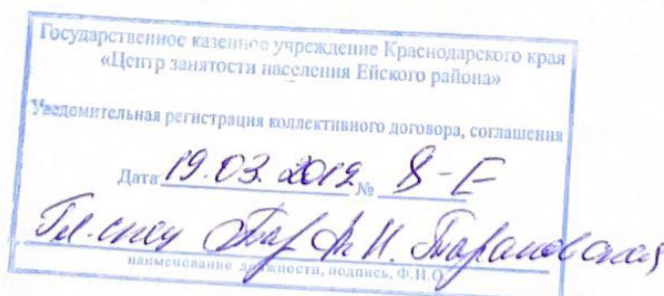 Государственное казенное учреждение Краснодарского края
«Центр занятости населения Ейского района»
Уведомительная регистрация коллективного договора, соглашения
Дата 19.03.2019 № 8-Е
Гл. спец
наименование должности, подпись, Ф.И.О.